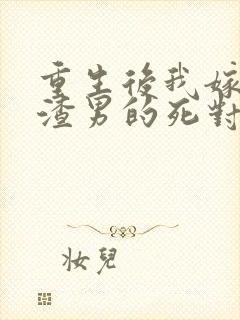 重生後我嫁
渣男的死對
妝兒